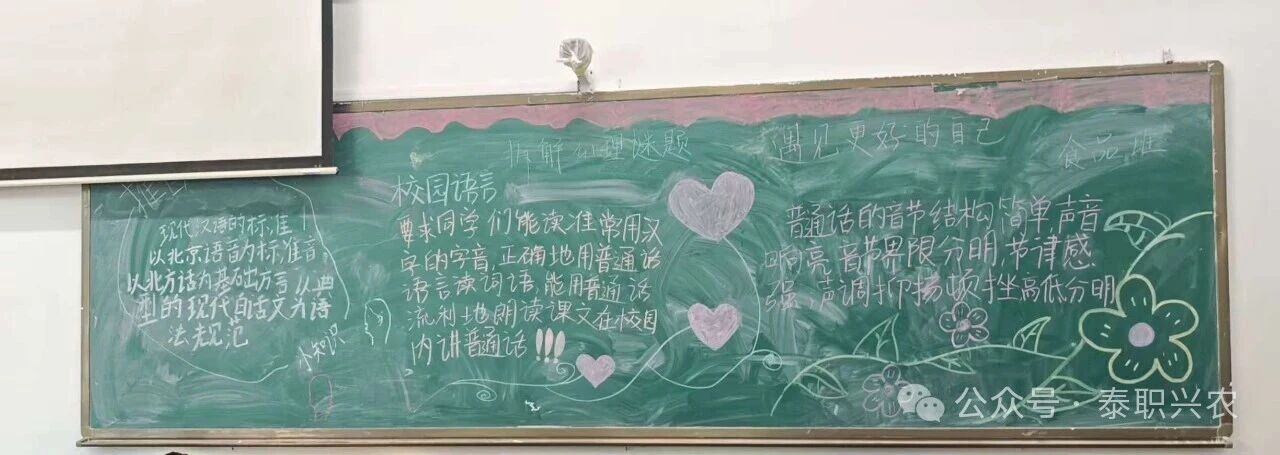 拆解心理谜题
遇见更好的自己
食品
现代汉语的标准
以北京语音为标准音
以北方话为基础方言以典
型的现代白话文为语
法规范
小知识
校园语言
要求同学们能读准常用汉
字的字音,正确地用普通话
语言读词语,能用普通话
流利地朗读课文在校园
内讲普通话!!!
普通话的音节结构简单,声音
响亮音节界限分明,节律感
强,声调抑扬顿挫高低分明
公众号·泰职兴农